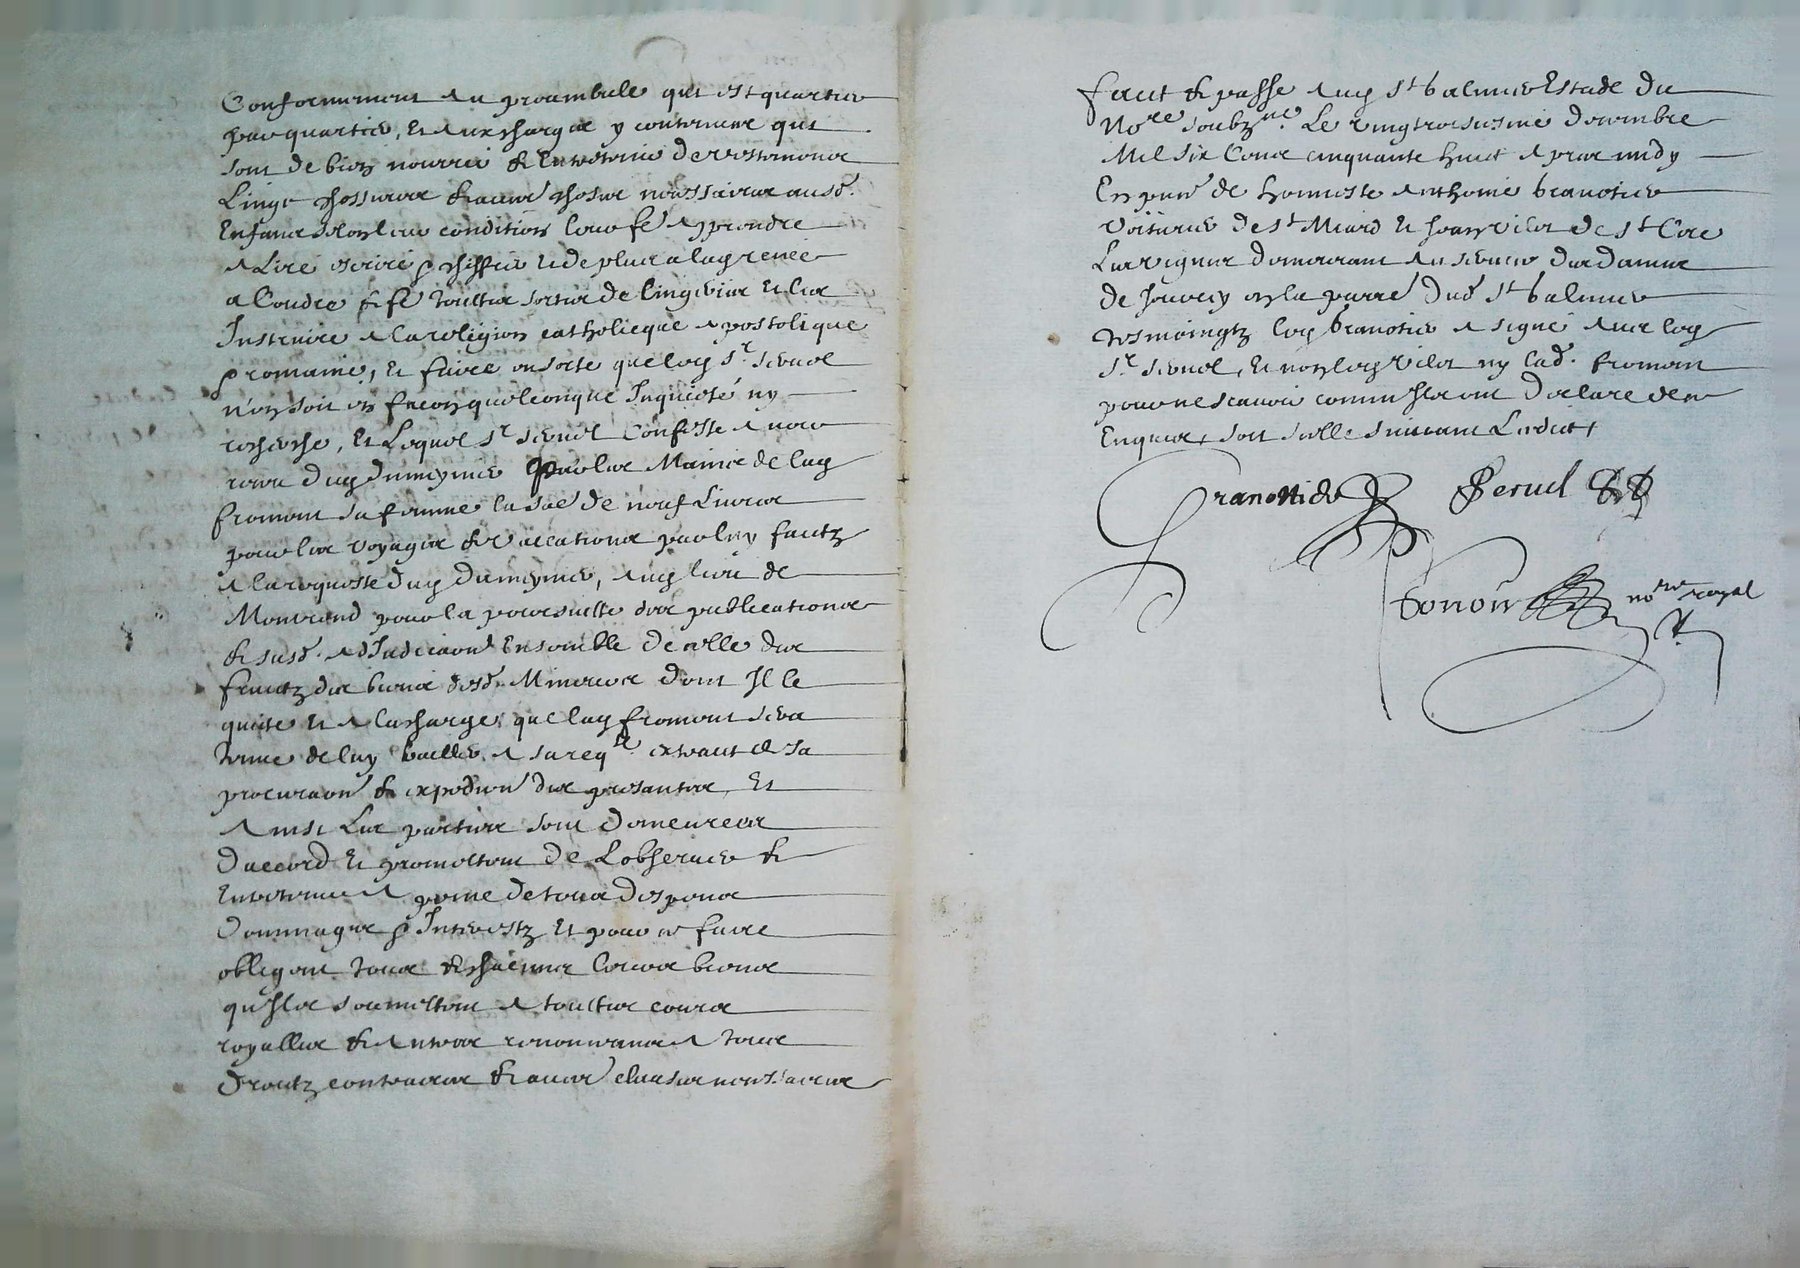 Conformement au preambule qui est quartier
par quartier, et aux charges y contenues qui
sont de bien nourrir & entretenir de vestemens
Linge chossures & autres choses necessaires ausd.
Enfans selon leur condition leur fe apprendre
a Lire escrire chiffrer et de plus a lagrenee
a Coudre & fe touttes sortes de lingeries et les
Instruire a la religion catholicque apostolique
romaine, et faire en sorte que led Sr. Seruel
n'en soit en facon quelconque Inquieté ny
recherche, Et Lequel Sr Seruel Confesse avoir
receu dud dumeynier Par les Mains de lad
fromont sa femme la soe de neuf Livres
pour les voyages & vaccations par luy faictz
a la requeste dud Dumeynier, aud lieu de
Montrond pour la poursuitte des publications
& susd. adJudicaon Ensemble de celle des
fruictz des biens desd. Mineurs dont Il le
quite et a la charge que lad fromont sera
tenue de luy bailler a sa reqte. extraict de sa
procuraon & expedion des presantes, Et
Ainsi Les parties sont demeurees
Daccord et promettent de Lobserver &
Entretenir a peine de tous despens
Dommages Interestz Et pour ce faire
obligent tous & chacuns leurs biens
quIls soumettent a touttes cours
royalles & autres renonceans a tous
Droictz contraires & autres clauses necessaires
faict & passe aud St balmier Estude du
Nore. soubzne. Le vingtroisiesme decembre
Mil six Cens cinquante huict apres midy
En pnce de honneste Anthoine branotier
Voiturier de St Miard et Jean vilot de St Cire
Les vignes demeurant au service des dames
de Jourcey en la parre. dud St balmier
tesmoingtz led branotier a signé avec led
Sr. Seruel, et non led vilot ny lad. fromont
pour ne scavoir comme Ils ont declare de ce
Enquis, soit scelle suivant Ledict,
Granottier Seruel
Ponson nore royal